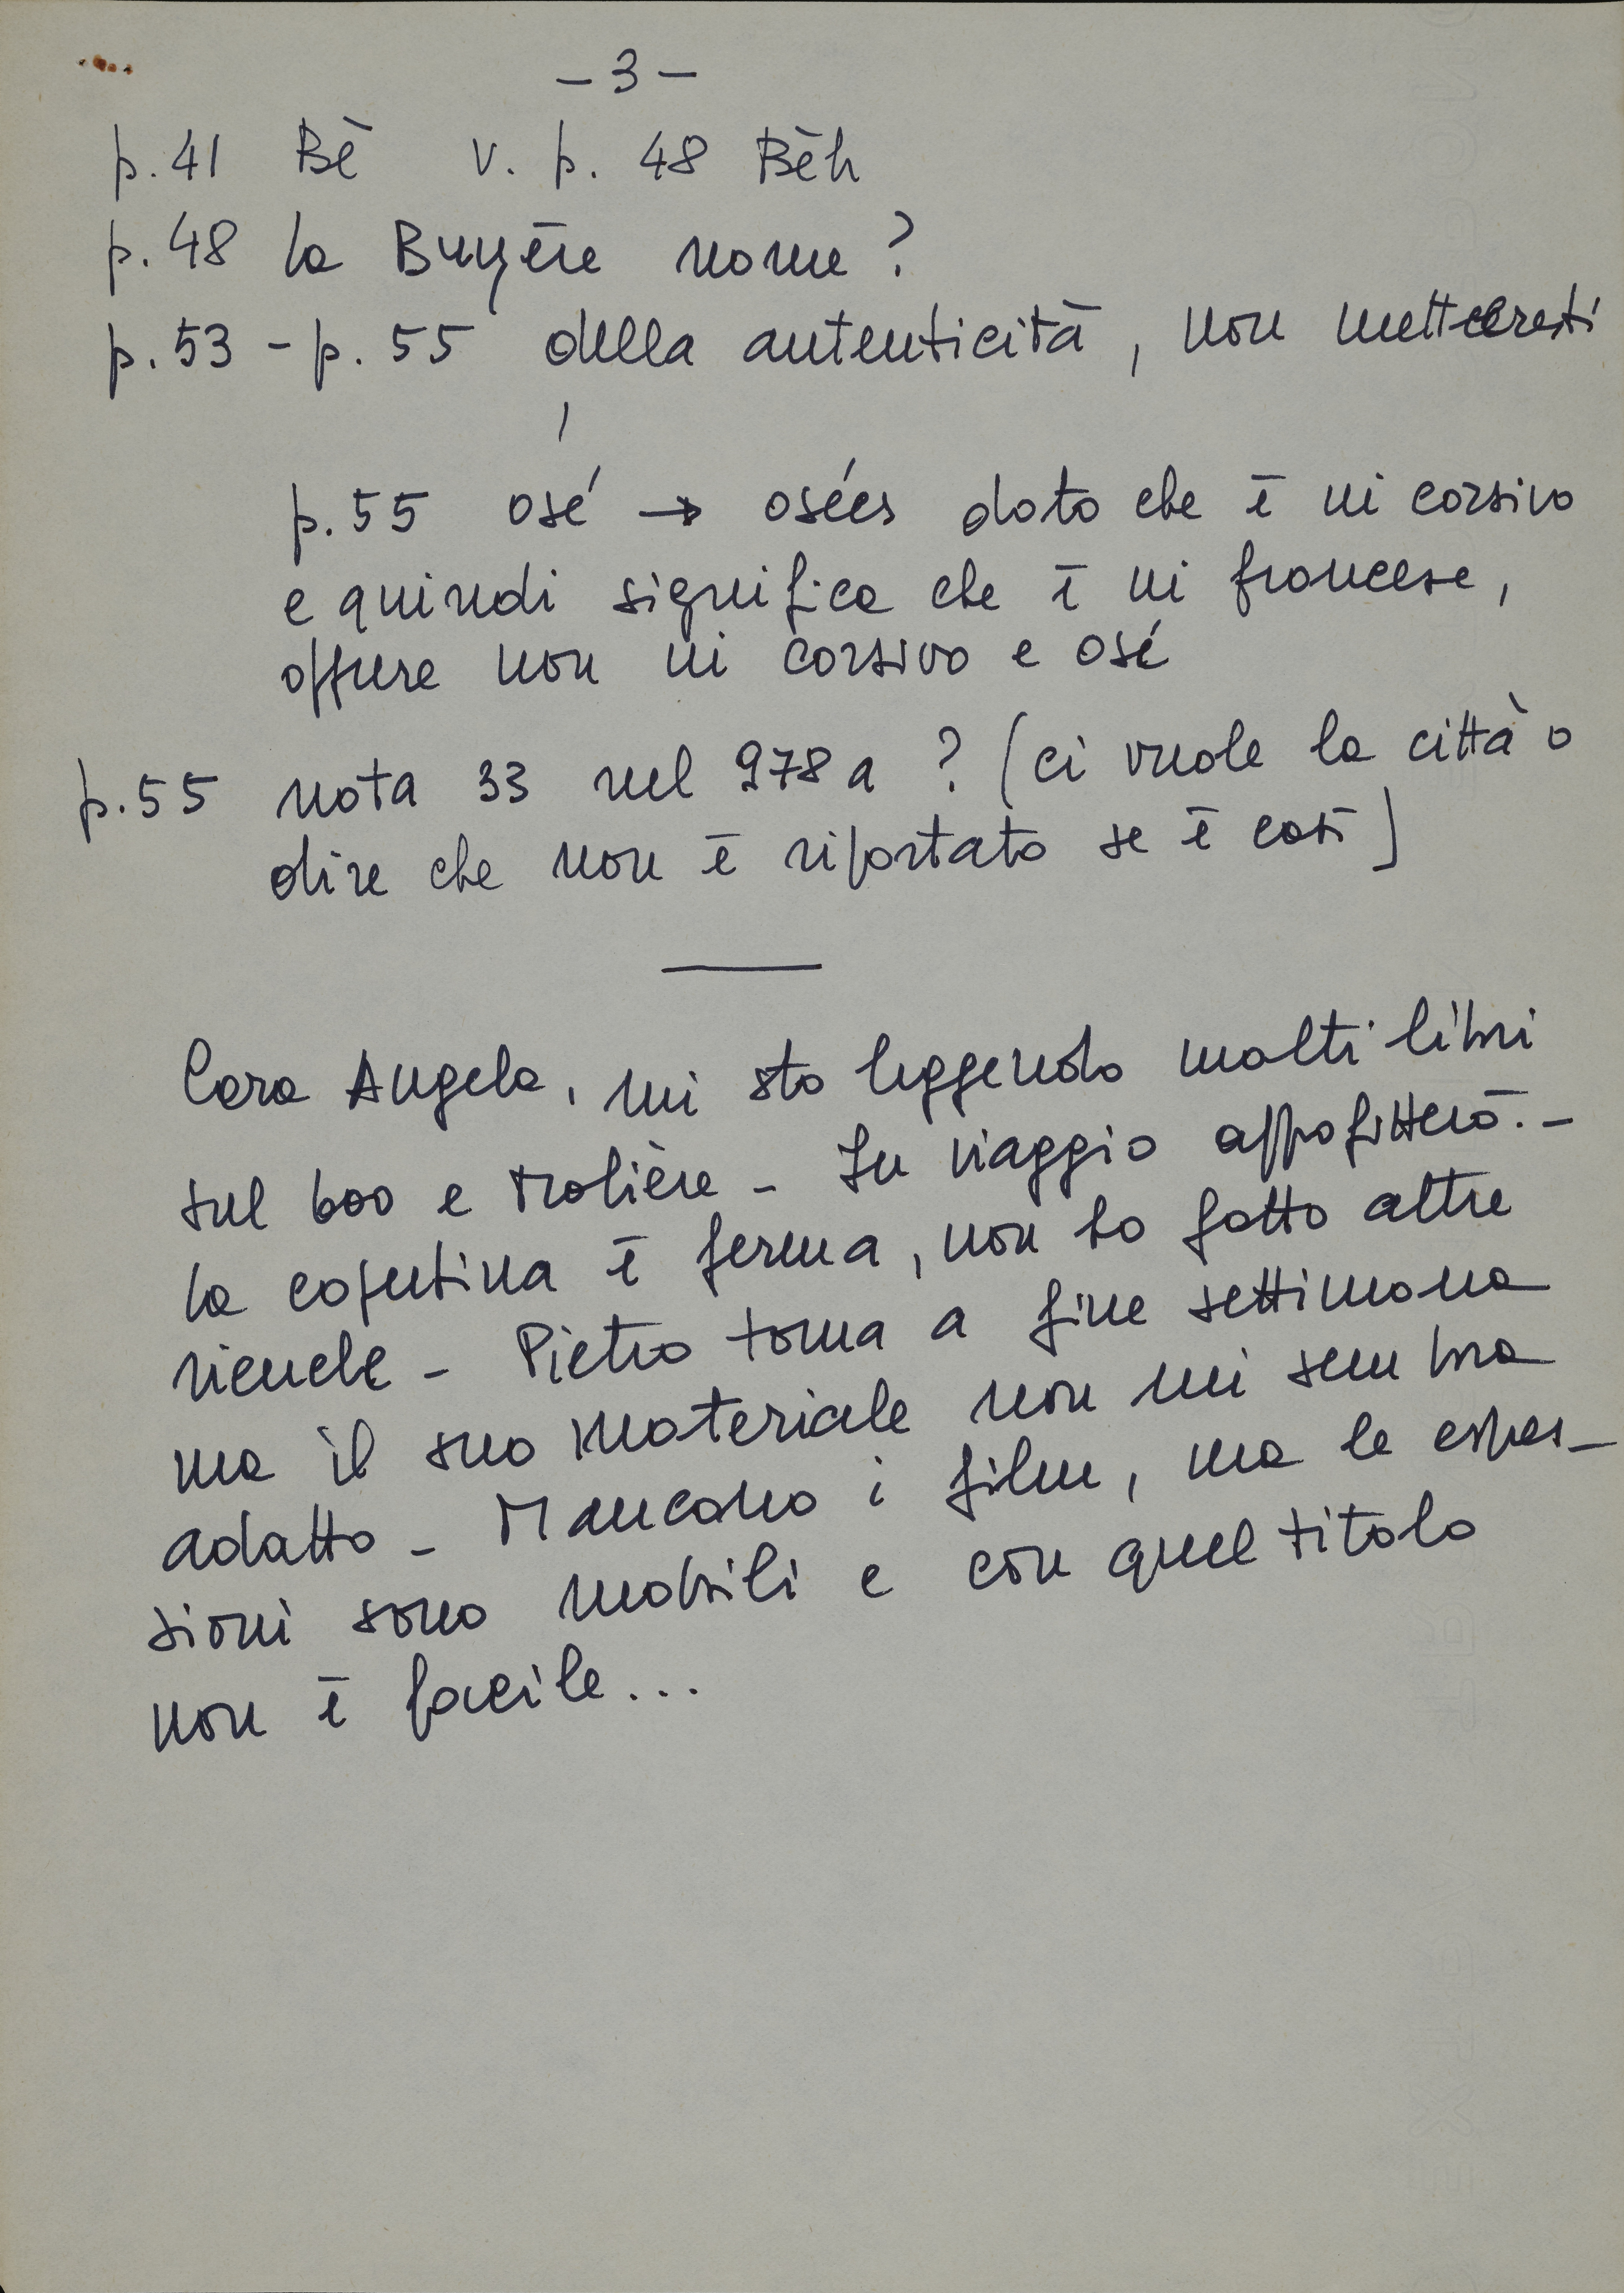 - 3 -
p. 41 Bè v. p. 48 Bèh
p. 48 la Buyère nome?
p. 53 - p. 55 della autenticità, non metteresti
'
p. 55 osé → osées dato che è in corsivo
e quindi significa che è in francese,
oppure non in corsivo e osé
p. 55 nota 33 nel 978a? (ci vuole la città o
dire che non è riportato se è così)
Cara Angela, mi sto leggendo molti libri
sul 600 e Molière - In viaggio approfitterò. -
la copertina è ferma, non ho fatto altre
- Pietro torna a fine settimana
ma il suo materiale non mi sembra
adatto - Mancano i film, ma le espres-
sioni sono mobili e con quel titolo
non è facile...